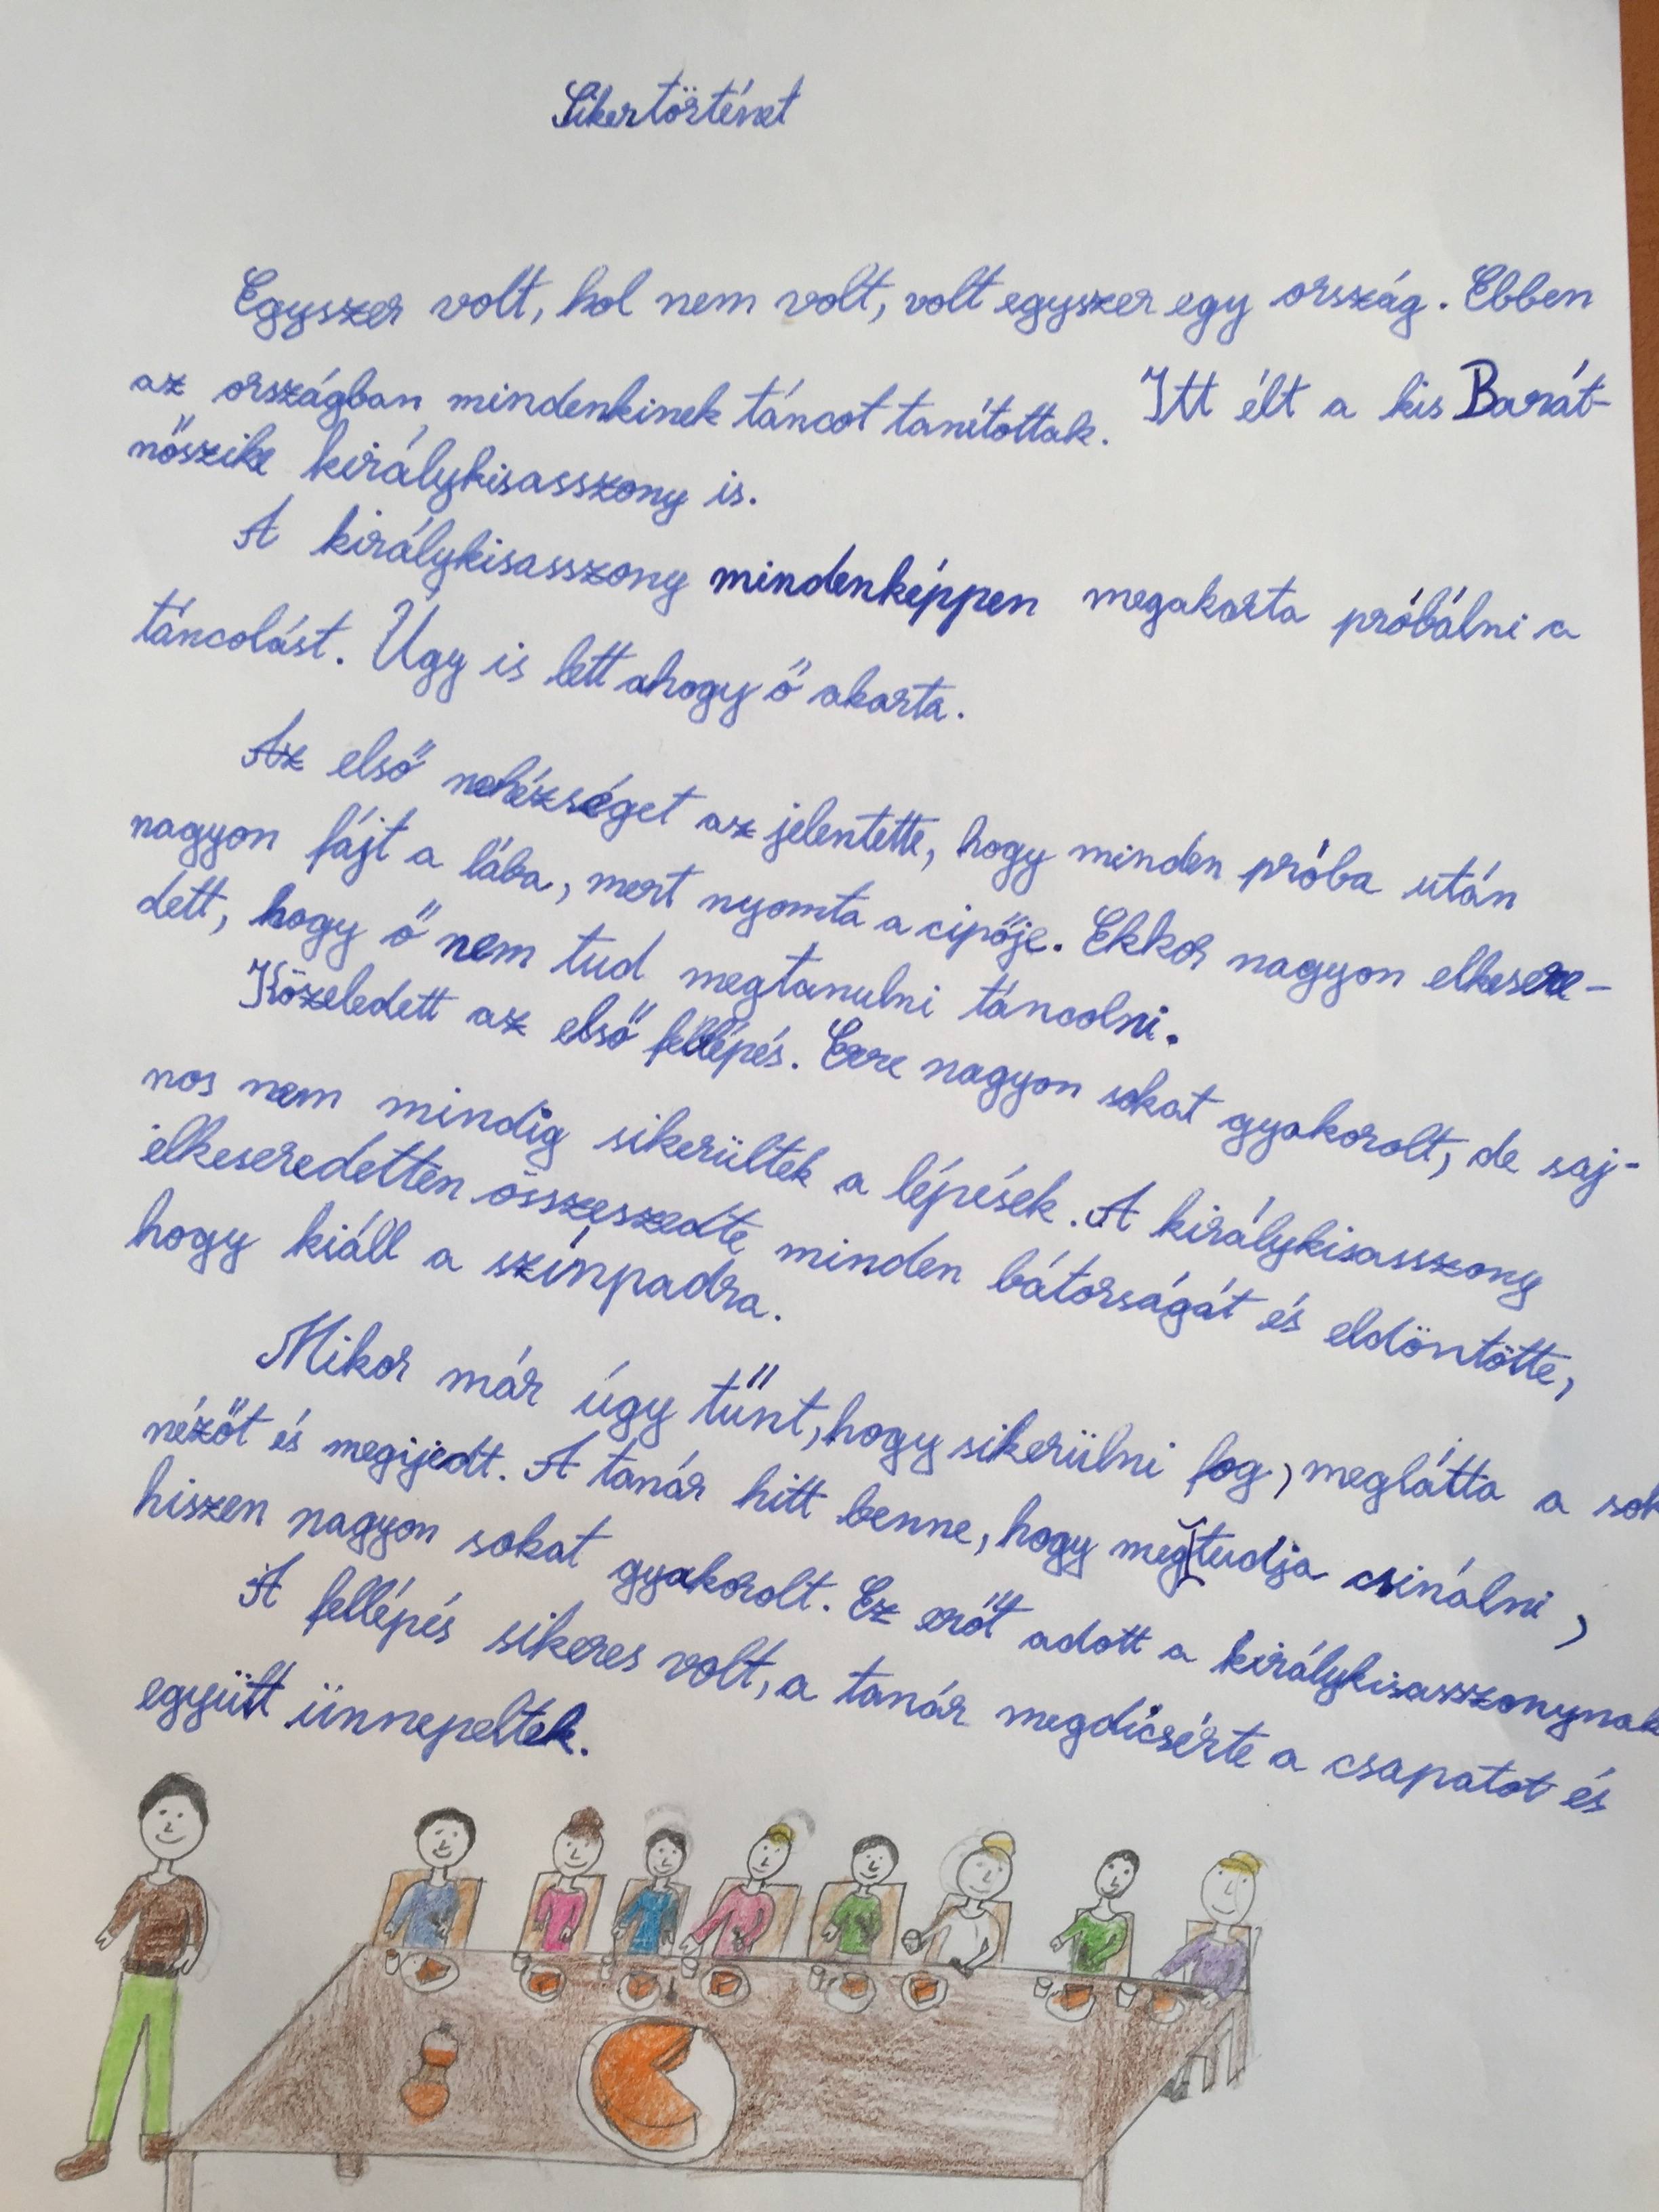 Sikertörténet
Egyszer volt, hol nem volt, volt egyszer egy ország. Ebben
az országban mindenkinek táncot tanítottak. Itt élt a kis Barát-
nőszike királykisasszony is.
A királykisasszony mindenképpen megakarta próbálni a
táncolást. Úgy is lett ahogy ő akarta.
Az első nehézséget az jelentette, hogy minden próba után
nagyon fájt a lába, mert nyomta a cipője. Ekkor nagyon elkesere-
dett, hogy ő nem tud megtanulni táncolni.
Közeledett az első fellépés. Erre nagyon sokat gyakorolt, de saj-
nos nem mindig sikerültek a lépések. A királykisasszony
elkeseredetten összeszedte minden bátorságát és eldöntötte,
hogy kiáll a színpadra.
Mikor már úgy tűnt, hogy sikerülni fog, meglátta a sok
nézőt és megijedt. A tanár hitt benne, hogy meg tudja csinálni,
hiszen nagyon sokat gyakorolt. Ez erőt adott a királykisasszonynak
A fellépés sikeres volt, a tanár megdícsérte a csapatot és
együtt ünnepeltek.